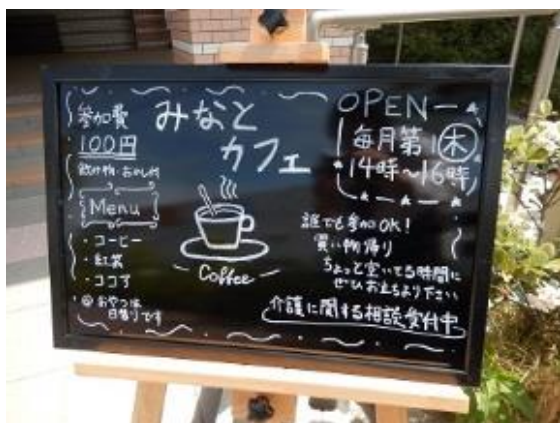 参加費
100円
飲み物・おかし付
Menu
・コーヒー
・紅茶
・ココア
◎おやつは
日替りです
みなと
カフェ
Coffee
OPEN
毎月第1木
14時〜16時
誰でも参加OK!
買い物帰り
ちょっと空いてる時間に
ぜひお立ちより下さい
介護に関する相談受付中